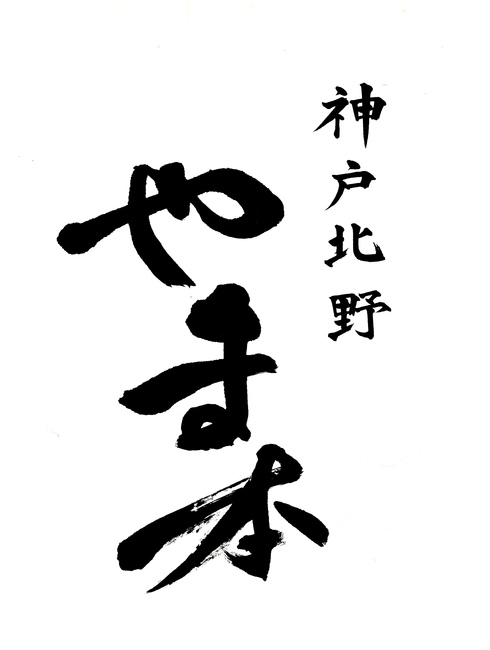 神戸北野
やま本